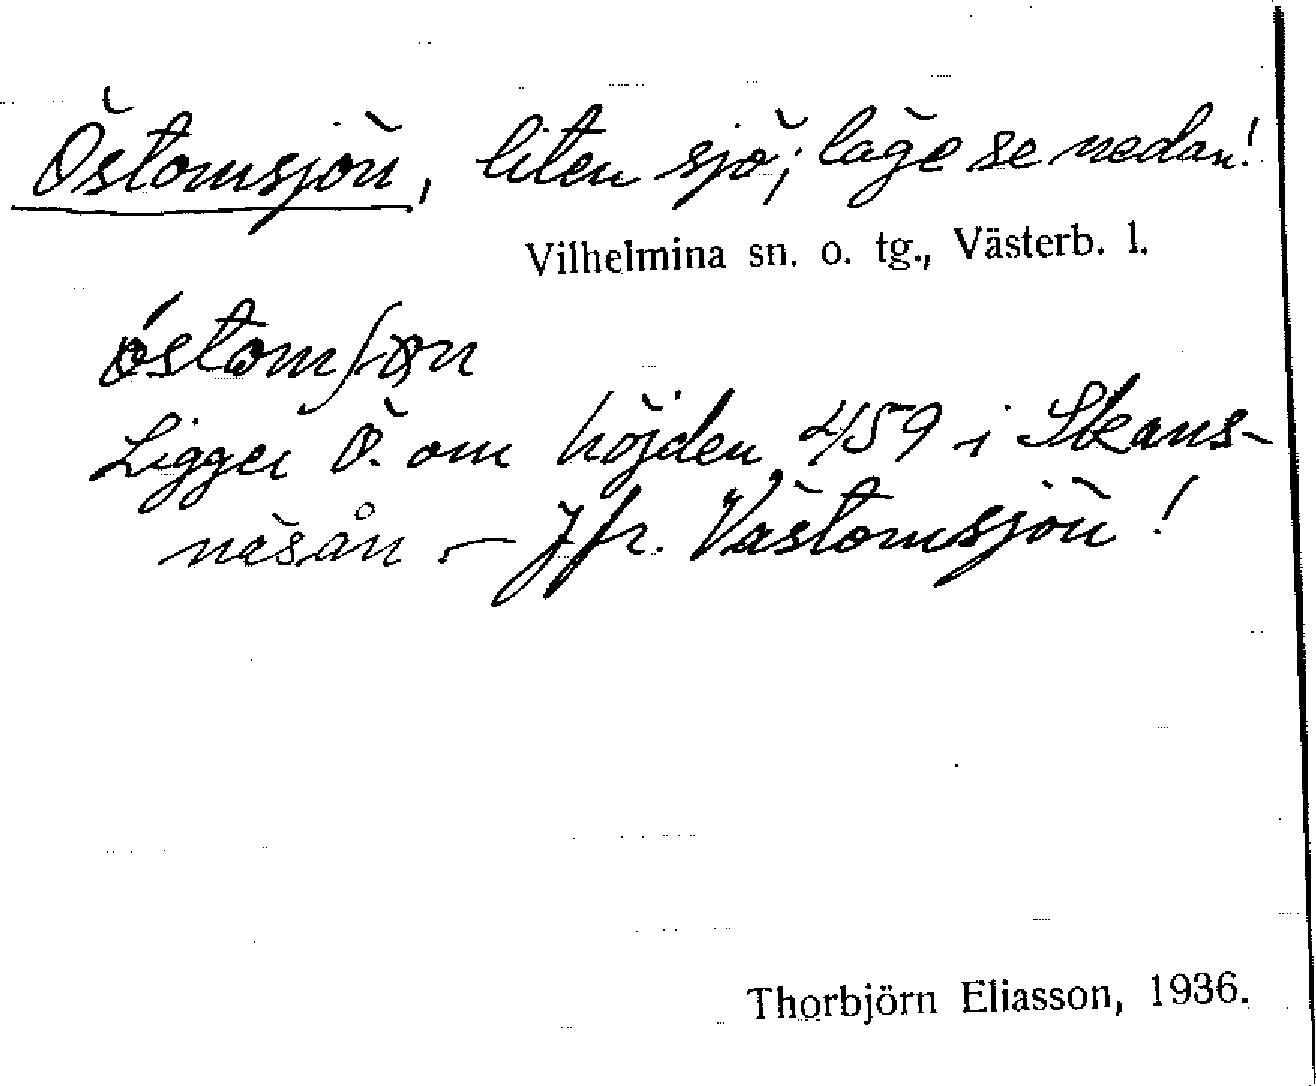 Östomsjön, liten sjö; läge se nedan!
Vilhelmina sn. o. tg., Västerb. l.
Ligger Ö. om höjden 459 i Skans-
näsån – Jfr. Västomsjön!
Thorbjörn Eliasson, 1936.